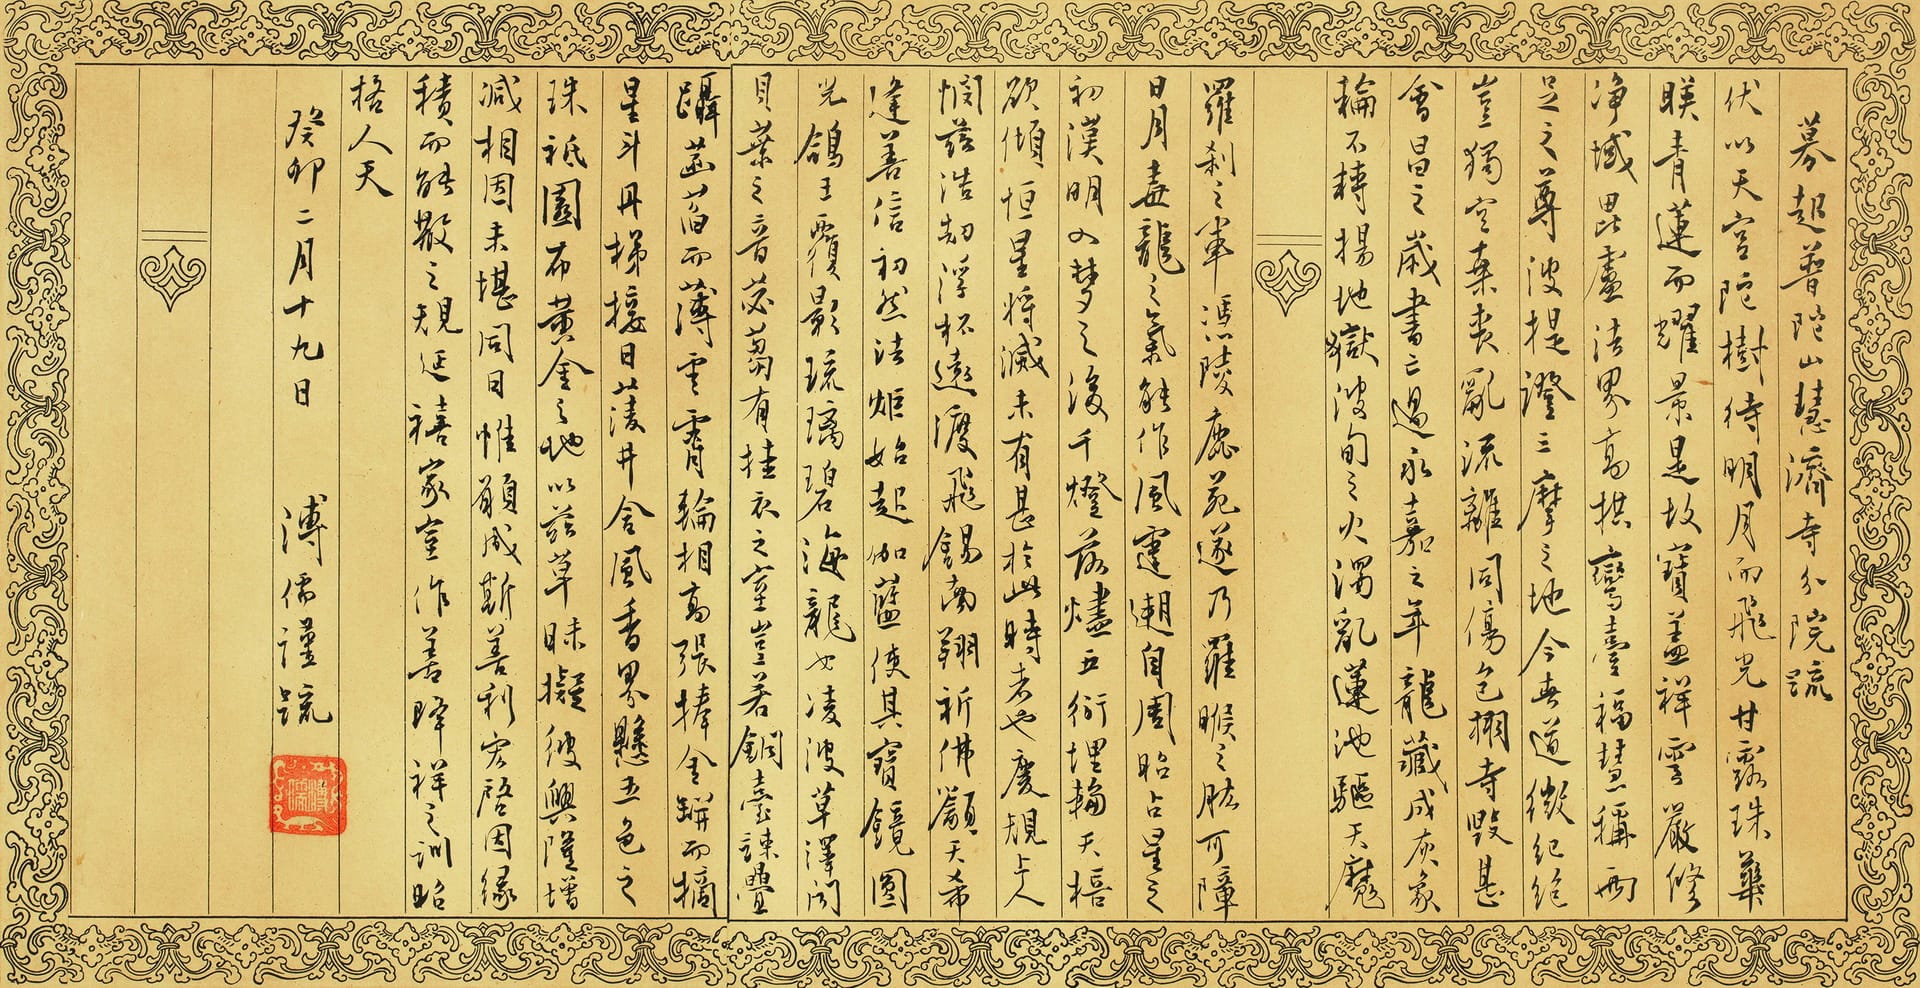 募起普陀山慧濟寺分院疏
伏以天宮陀樹待明月而飛光甘露珠華
映青蓮而耀景是故寶蓋祥雲嚴修
净域毘盧法界高拱鸞臺福慧稱兩
足之尊波提證三摩之地今無道徵紀絕
豈獨空桑喪亂流離同傷包掤寺毀甚
會昌之歲書亡過永嘉之年龍藏成灰象
輪不轉揚地獄波旬之火濁亂蓮池驅天魔
羅刹之軍馮陵鹿苑遂乃羅睺之肱可障
日月毒龍之氣能作風霆遡自周昭占星之
初漢明入夢之後千燈落燼五衍埋輪天棓
欲傾恒星將滅未有甚於此時者也慶規上人
憫茲浩劫浮杯遠渡飛錫南翔祈佛籲天希
逢善信初然法炬始起伽藍使其寶鏡圓
光鴿王覆影琉璃碧海龍女凌波草澤聞
貝葉之音苾蒭有挂衣之室豈若銅臺諫疊
躡菡萏而薄雲霄輪相高張捧金缾而摘
星斗丹梯接日菱井含風香界懸五色之
珠祇園布黄金之地以茲草昧擬彼興隆增
減相因未堪同日惟願咸斯善利宏啓因緣
積而能散之規延禧家室作善降祥之訓昭
格人天
癸卯二月十九日 溥儒謹疏
溥儒